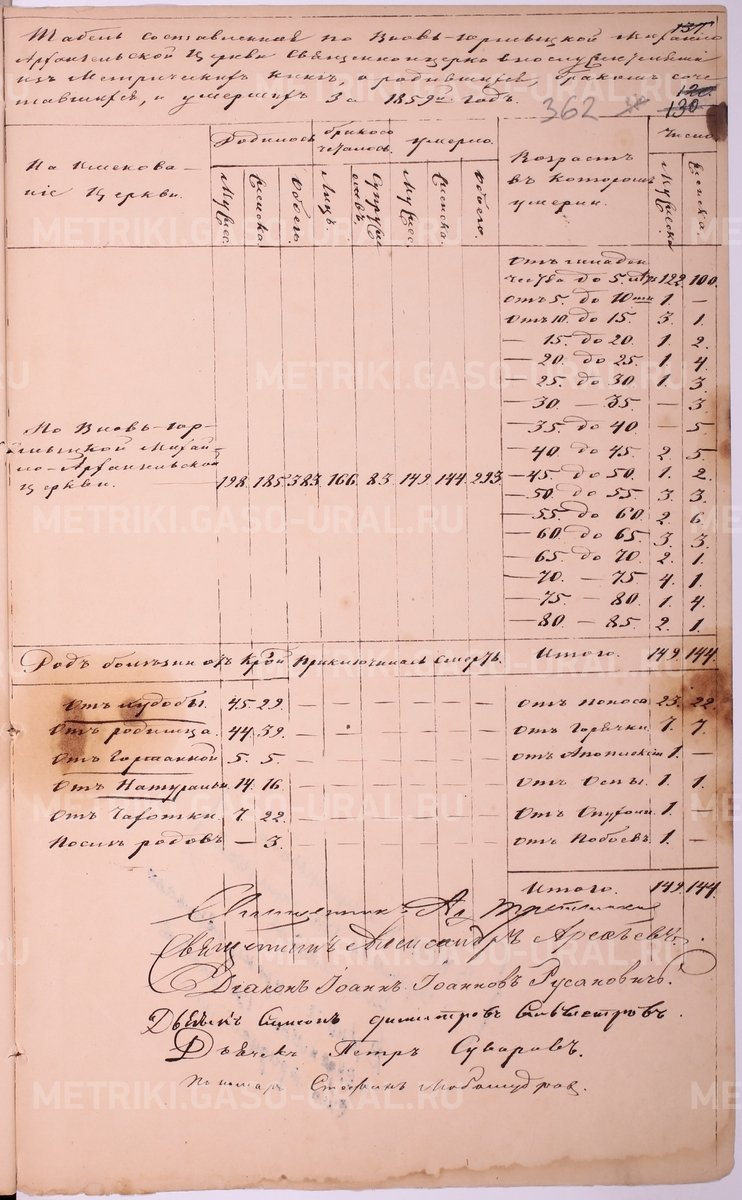 137
Табель составленная по Вновь-Юрмыцкой Михаило
Архангельской Церкви Священноцерковнослужителями
изъ Метрическихъ Книгъ, о родившихся, бракомъ соче
тавшихся, и умершихъ За 1859й годъ.
362
130
На именова-
ніе Церкви.
Родилось
бракосо
четалось.
умерло.
Возрастъ
въ которомъ
умерли.
Число
Мужес.
Женска.
Обоего.
Лицъ.
Супруже
ствъ.
Мужес.
Женска.
Обоего.
Мужеска
Женска
Отъ младен
чества до 5. лѣтъ 122. 100.
отъ 5. до 10 1. —
отъ 10. до 15. 3. 1.
— 15. до 20. 1. 2.
— 20. до 25. 1. 4.
— 25. до 30. 1. 3.
— 30. — 35. — 3.
— 35. до 40. — 5.
— 40. до 45. 2. 5.
— 45. до 50. 1. 2.
— 50. до 55. 3. 3.
— 55. до 60. 2. 6.
— 60. до 65. 3. 3.
— 65. до 70. 2. 1.
— 70. — 75. 4. 1.
— 75. — 80. 1. 4.
— 80. — 85. 2. 1.
По Вновь-Юр-
мыцкой Михай-
ло-Архангельской
Церкви. 198. 185. 383. 166. 83. 149. 144. 293.
Итого. 149. 144.
Родъ болѣзни отъ Коей Приключилась Смерть.
Отъ худобы. 45. 29. — — — — — — Отъ поноса 23. 22.
Отъ родимца. 44. 39. — — — — — — Отъ Горячки. 7. 7.
Отъ Гортанной 5. 5. — — — — — — Отъ 1. —
Отъ Натуральн. 14. 16. — — — — — — Отъ Оспы. 1. 1.
Отъ Чахотки. 7. 22. — — — — — — Отъ Опухоли. 1.
Послѣ родовъ — 3. — — — — — — Отъ Побоевъ. 1. —
Итого. 149. 144.
Священникъ
Священникъ Александръ
Діаконъ Іоаннъ Іоанновъ Русановичъ.
Дьячекъ Симеонъ Димитровъ Сильвестровъ.
Дьячекъ Петръ Суворовъ.
Пономарь Стефанъ Любомудровъ.
METRIKI.GASO-URAL.RU